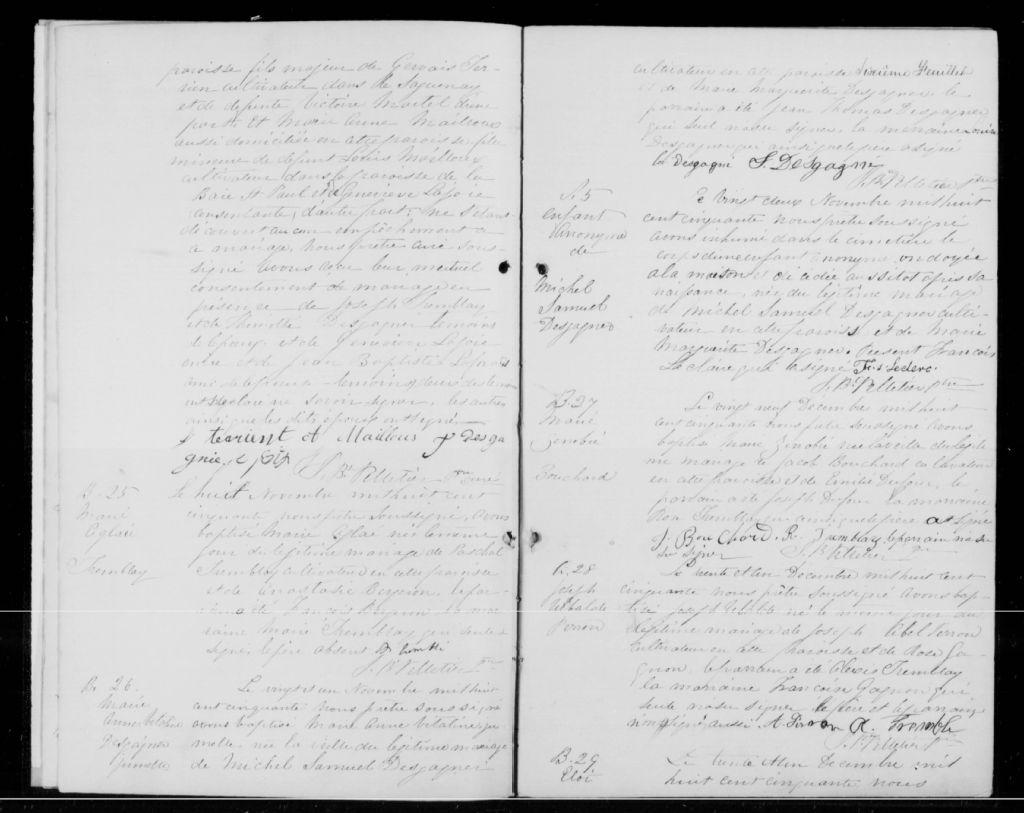 paroisse fils majeur de Gervais Ter-
rien cultivateur dans le Saguenay
et de defunte Victoire Martel d'une
part. Et Marie Anne Mailloux
aussi domiciliée en cette paroisse fille
mineure de defunt Louis Mailloux
cultivateur dans la paroisse de la
Baie St Paul et de Geneviève Lajoie
consentante, d'autre part; ne s'étant
découvert aucun empêchement à
ce mariage, Nous prêtre curé sous-
signé avons reçu leur mutuel
consentement de mariage en
présence de Joseph Tremblay
et de Thimothé Desgagner temoins
de l'époux et de Geneviève Lajoie
mère et de Jean Baptiste
ami de l'épouse temoins, deux des temoins
ont déclaré ne savoir signer, les autres
ainsi que les dits époux ont signé
terrient et Mailloux Desga
gnie
J. Bte Pelletier Ptre curé
B. 25
Marie
Eglaé
Tremblay
Le huit Novembre mil huit cent
cinquante nous prêtre soussigné, avons
baptisé Marie Eglaé née le même
jour du légitime mariage de Paschal
Tremblay cultivateur en cette paroisse
et de Anastasie Perron, le par-
rain a été François Perron la mar-
raine Marie Tremblay qui seule
signe, le père absent
J. Bte Pelletier Ptre
B. 26.
Marie
Anne
Desgagner
Jumelle
Le vingt et un Novembre mil huit
cent cinquante Nous prêtre soussigné
avons baptisé Marie Anne ju
melle, née la veille du légitime mariage
de Michel Samuel Desgagner
Sixième Feuillet
cultivateur en cette paroisse
et de Marie Marguerite Desgagner le
parrain a été Jean Thomas Desgagner
qui seul na su signer. la marraine
Desgagner qui ainsi que le père a signé
Desgagné S. Desgagné
J. Bte Pelletier Ptre
S. 5
Enfant
Anonyme
de
Michel
Samuel
Desgagner
Le Vingt deux Novembre mil huit
cent cinquante Nous prêtre soussigné
avons inhumé dans le cimetière le
corps d'un enfant anonyme, ondoyé
a la maison et décédé aussitot après sa
naissance, née du légitime mariage
de Michel Samuel Desgagner culti-
vateur en cette paroisse et de Marie
Marguerite Desgagner. Present Francois
Le Claire qui a signé Frs Leclerc.
J. Bte Pelletier ptre
B. 27
Marie
Zenobie
Bouchard
Le vingt neuf Decembre mil huit
cent cinquante nous prêtre soussigné avons
baptisé Marie Zénobie née la veille du légiti
me mariage de Jacob Bouchard cultivateur
en cette paroisse et de Emilie Dufour, le
parrain a été Joseph Dufour la marraine
Rose Tremblay qui ainsi que le père a signé
J. Bou Chard. R. Tremblay le parrain na su
signer J. Bte Pelletier Ptre
B. 28
Joseph
Perron
Le trente et un Decembre mil huit cent
cinquante nous prêtre soussigné avons bap-
tisé Joseph né le même jour du
légitime mariage de Joseph Abel Perron
cultivateur en cette paroisse et de Rose Ga-
gnon, le parrain a été Alexis Tremblay
la marraine Françoise Gagnon qui
seule na su signer, le père et le parrain
ont signé aussi A. Perron A. Tremble
J. Bte Pelletier Ptre
B. 29
Eloi
Le trente et un Decembre mil
huit cent cinquante nous